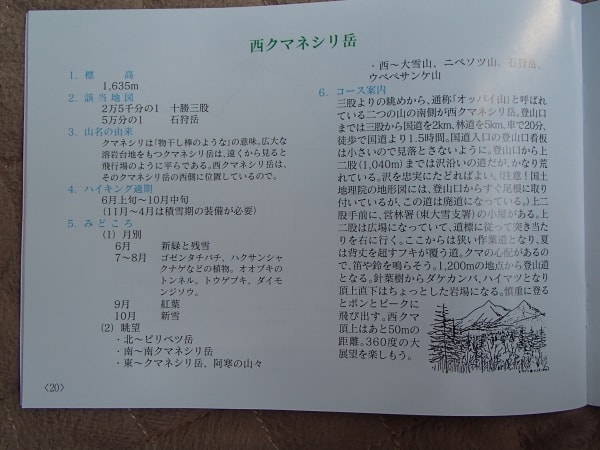 西クマネシリ岳
1. 標　高
1,635m
2. 該当地図
2万5千分の1　十勝三股
5万分の1　石狩岳
3. 山名の由来
クマネシリは「物干し棒のような」の意味。広大な
溶岩台地をもつクマネシリ岳は、遠くから見ると
飛行場のように平らである。西クマネシリ岳は、
そのクマネシリ岳の西側に位置しているので。
4. ハイキング適期
6月上旬〜10月中旬
(11月〜4月は積雪期の装備が必要)
5. みどころ
(1) 月別
6月　新緑と残雪
7〜8月　ゴゼンタチバナ、ハクサンシャ
クナゲなどの植物。オオブキの
トンネル。トウゲブキ、ダイモ
ンジソウ。
9月　紅葉
10月　新雪
(2) 眺望
・北〜ピリベツ岳
・南〜南クマネシリ岳
・東〜クマネシリ岳、阿寒の山々
・西〜大雪山、ニペソツ山、石狩岳、
ウペペサンケ山
6. コース案内
三股よりの眺めから、通称「オッパイ山」と呼ばれ
ている二つの山の南側が西クマネシリ岳。登山口
までは三股から国道を2km、林道を5km、車で20分、
徒歩で国道より1.5時間。国道入口の登山口看板
は小いので見落とさないように。登山口から上
二股(1,040m)までは沢沿いの道だが、かなり荒
れている。沢を忠実にたどればよい。(注意!国土
地理院の地形図には、登山口からすぐ尾根に取り
付いているが、この道は廃道になっている。)上二
股手前に、営林署(東大雪支署)の小屋がある。上
二股は広場になっていて、道標に従って突き当た
りを右に行く。ここからは狭い作業道となり、夏
は背丈を超すフキが覆う道。クマの心配があるの
で、笛や鈴を鳴らそう。1,200mの地点から登山道
となる。針葉樹からダケカンバ、ハイマツとなり
頂上直下はちょっとした岩場になる。慎重に登る
とポンとピークに
飛び出す。西クマ
頂上はあと50mの
距離。360度の大
展望を楽しもう。
〈20〉